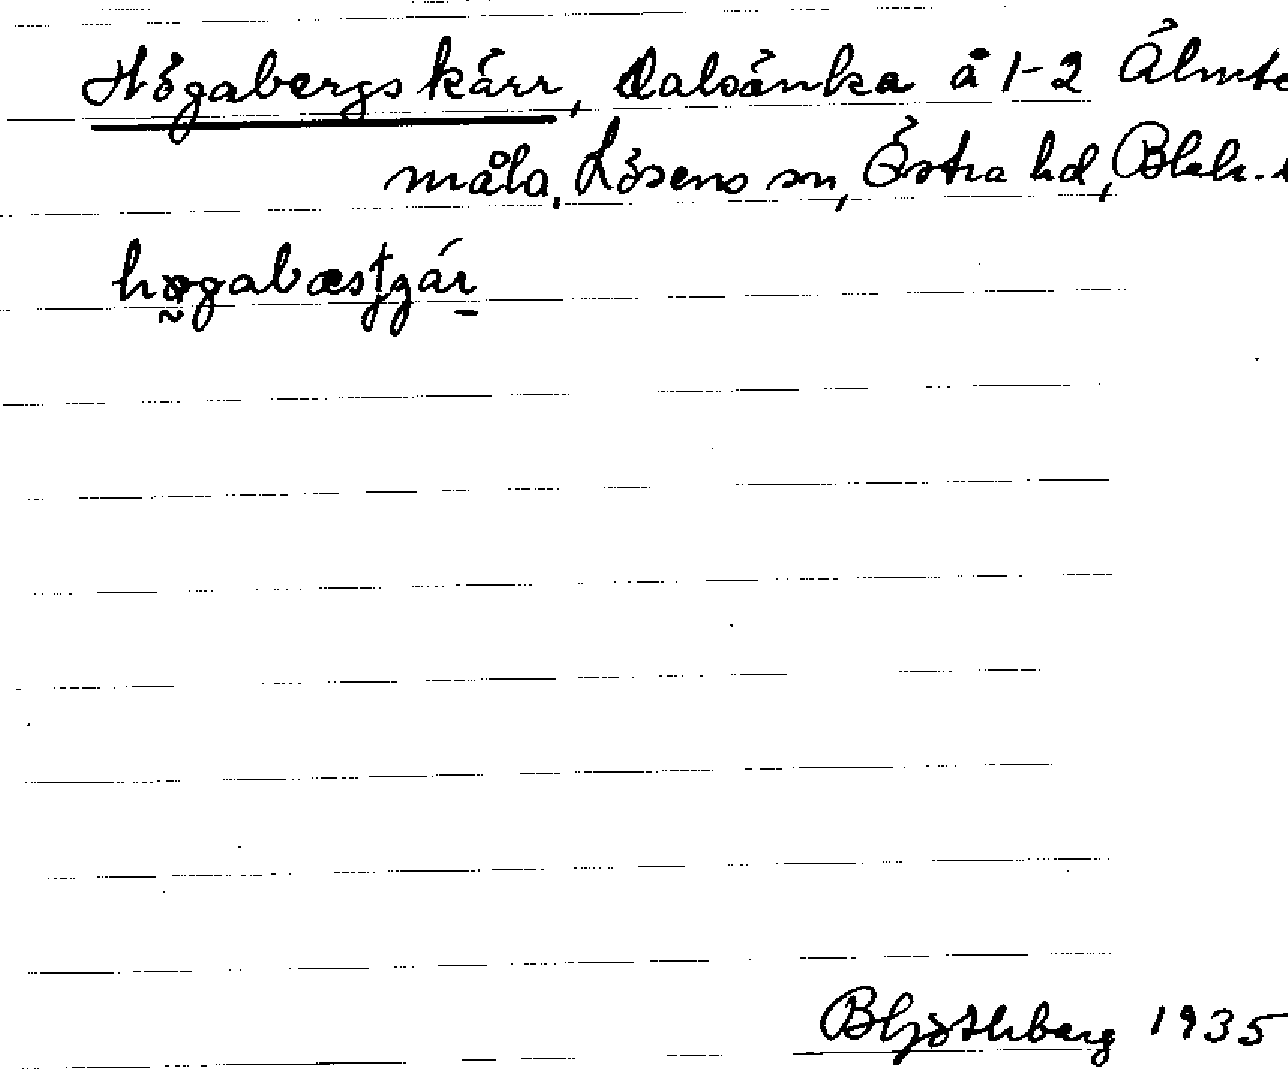 Högabergskärr, dalsänka å 1-2 Älmte
måla, Lösens sn, Östra hd, Blek.
högabæsţgär
1935